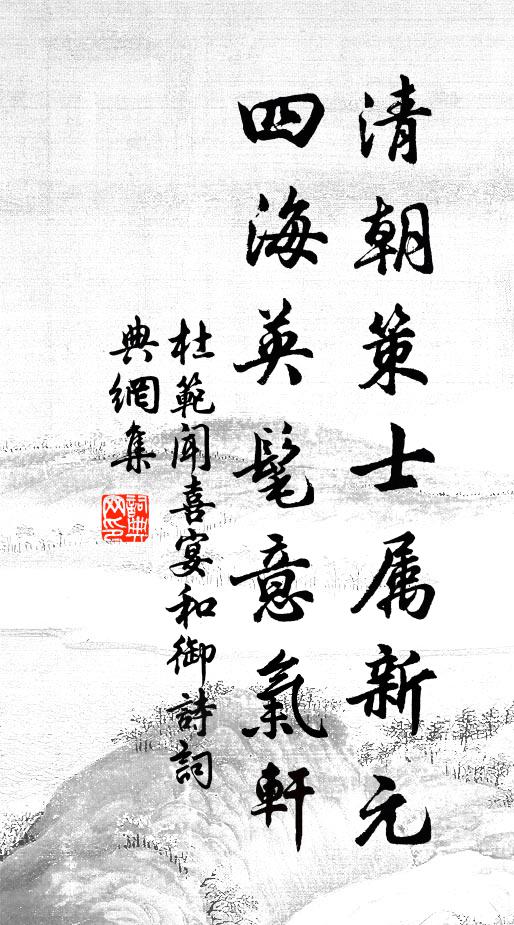 清朝策士属新元
四海英髦意氣軒
杜範聞喜宴和御詩詞
典網集
詞典網印